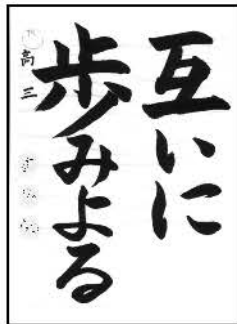 互いに
歩みよる
高三